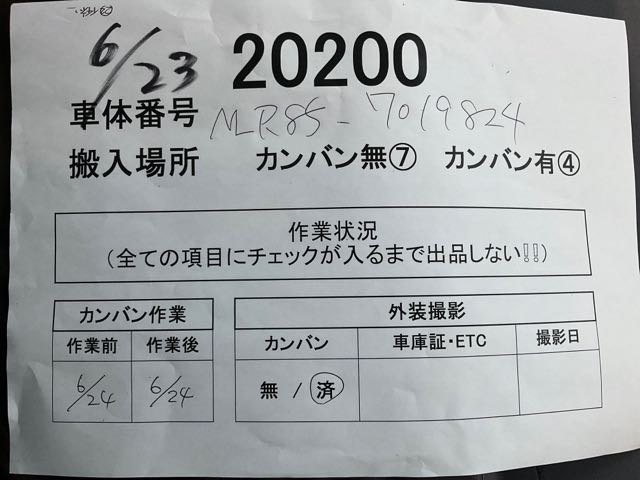 6/23 20200
車体番号 NLR85-7019824
搬入場所 カンバン無⑦ カンバン有④
作業状況
(全ての項目にチェックが入るまで出品しない!!)
カンバン作業 外装撮影
作業前 作業後 カンバン 車庫証・ETC 撮影日
6/24 6/24 無 / 済